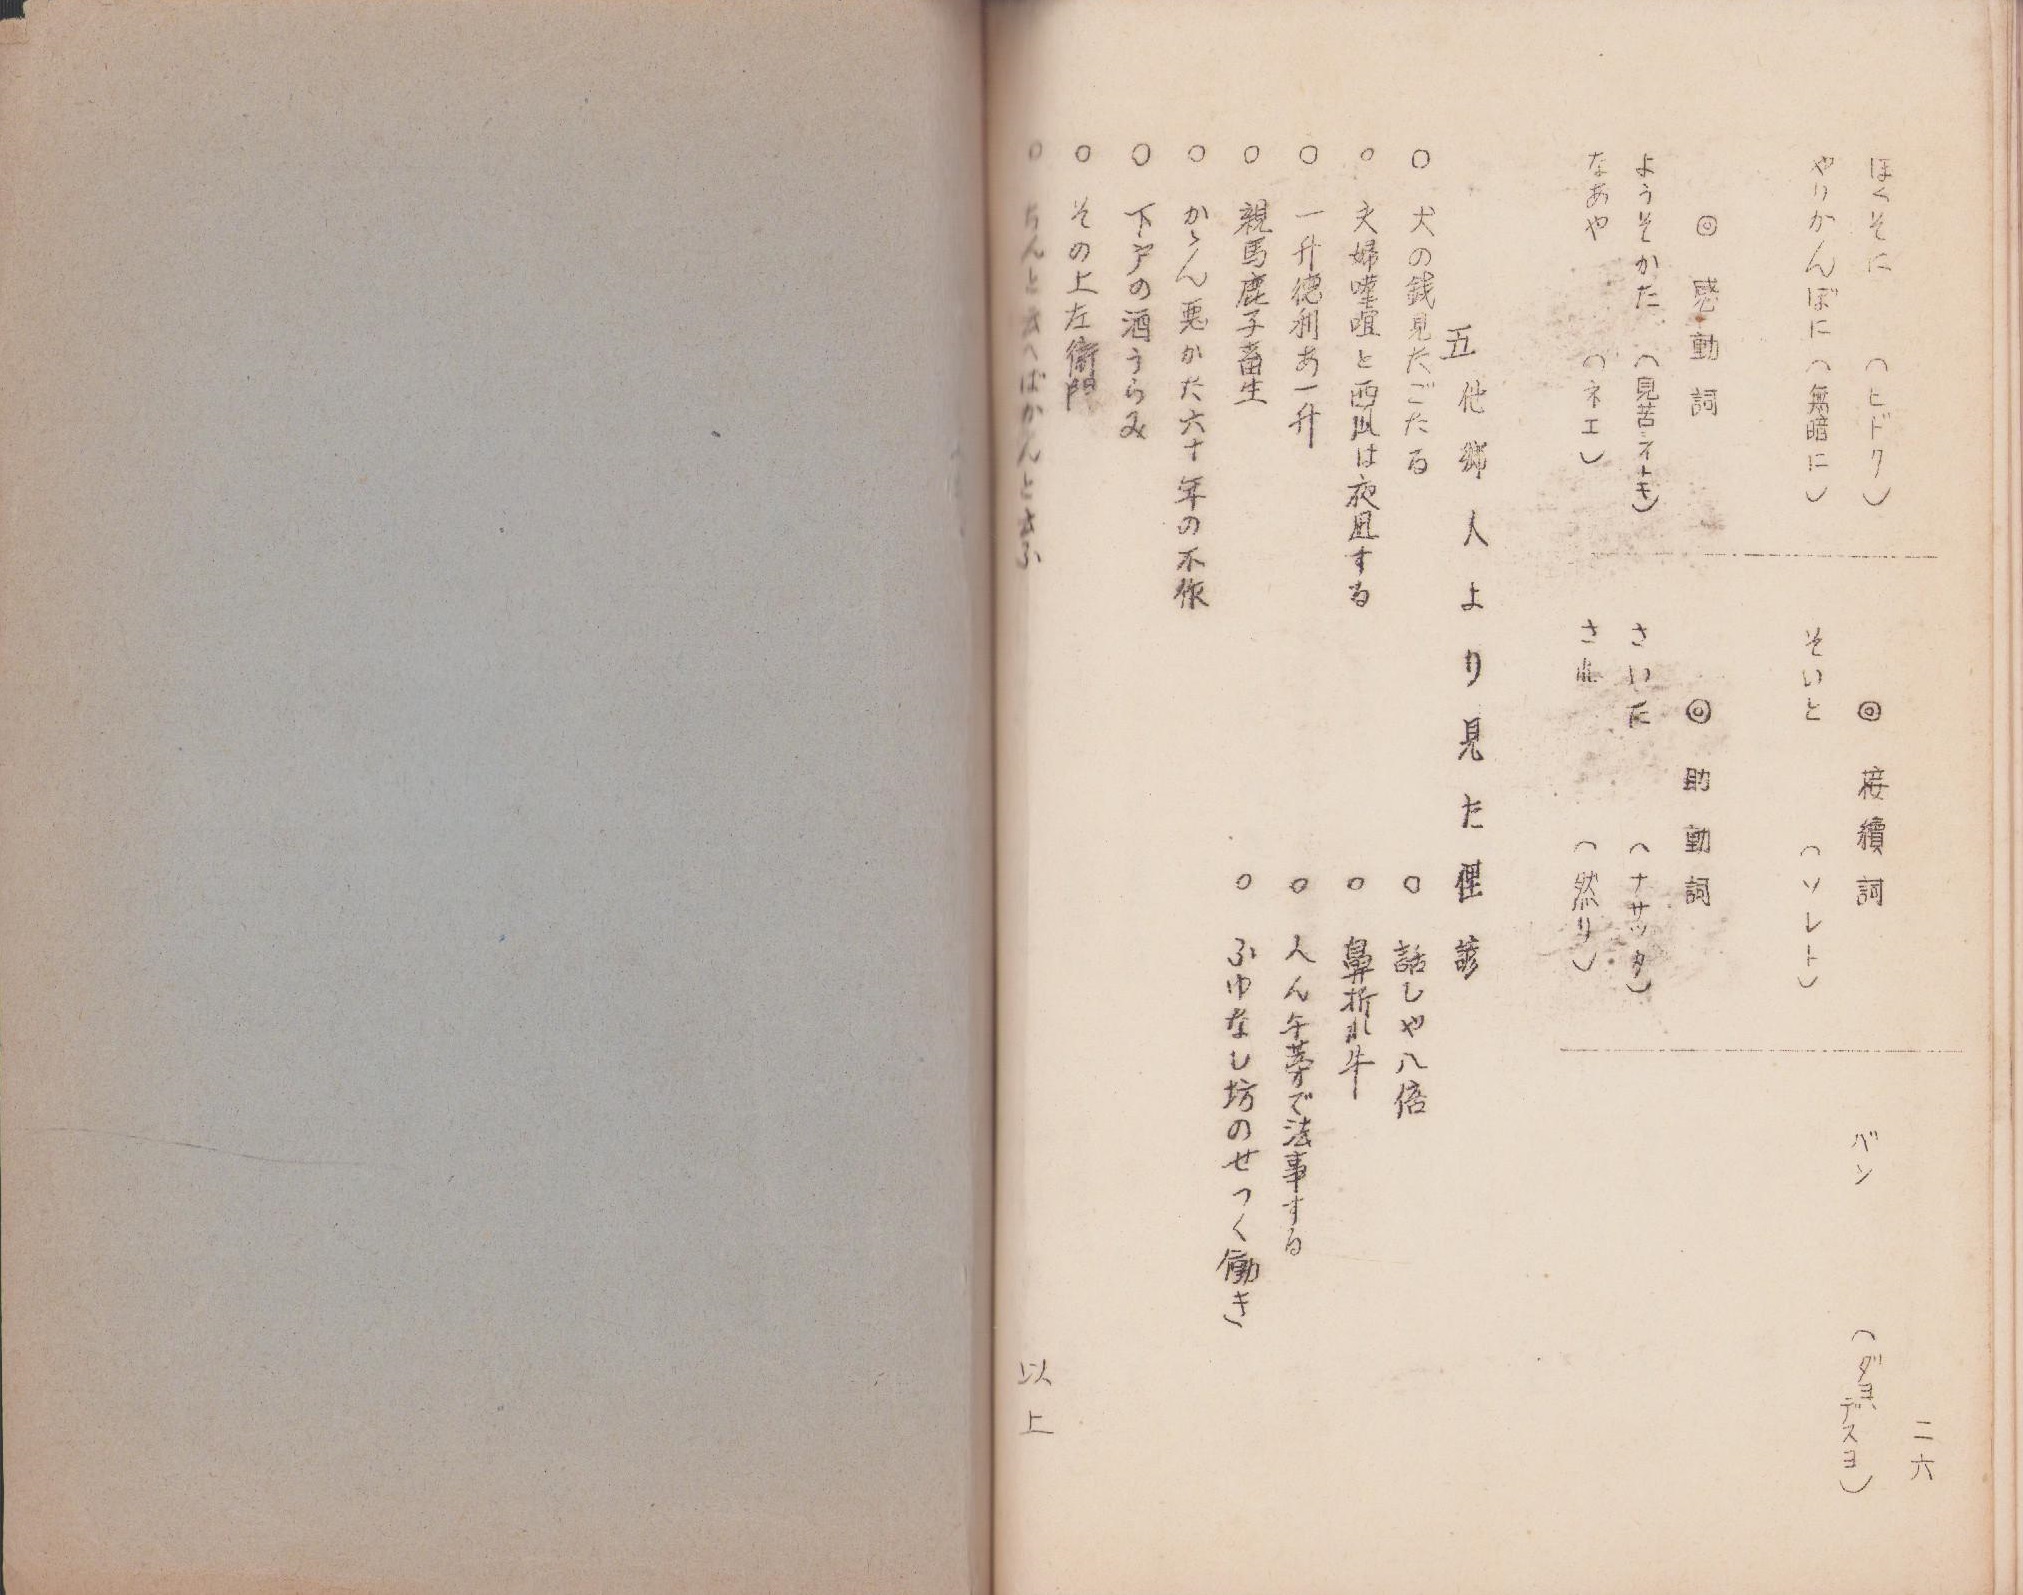 二六
ほくそに　(ヒドク)
やりかんぼに(無暗に)
◎感動詞
ようそかた(見苦シイトキ)
なあや　(ネエ)
◎接續詞
そいと　(ソレト)
◎助動詞
さいた　(ナサッタ)
され　(然リ)
バン　(ダヨ、デスヨ)
五　他郷人より見た俚諺
○　犬の銭見たごたる
○　夫婦喧嘩と西風は夜凪する
○　一升徳利あ一升
○　親馬鹿子畜生
○　かゝん悪かた六十年の不作
○　下戸の酒うらみ
○　その上左衛門
○　ちんと云へばかんと云ふ
○　話しや八倍
○　鼻折れ牛
○　人ん牛蒡で法事する
○　ふゆなし坊のせつく働き
以上